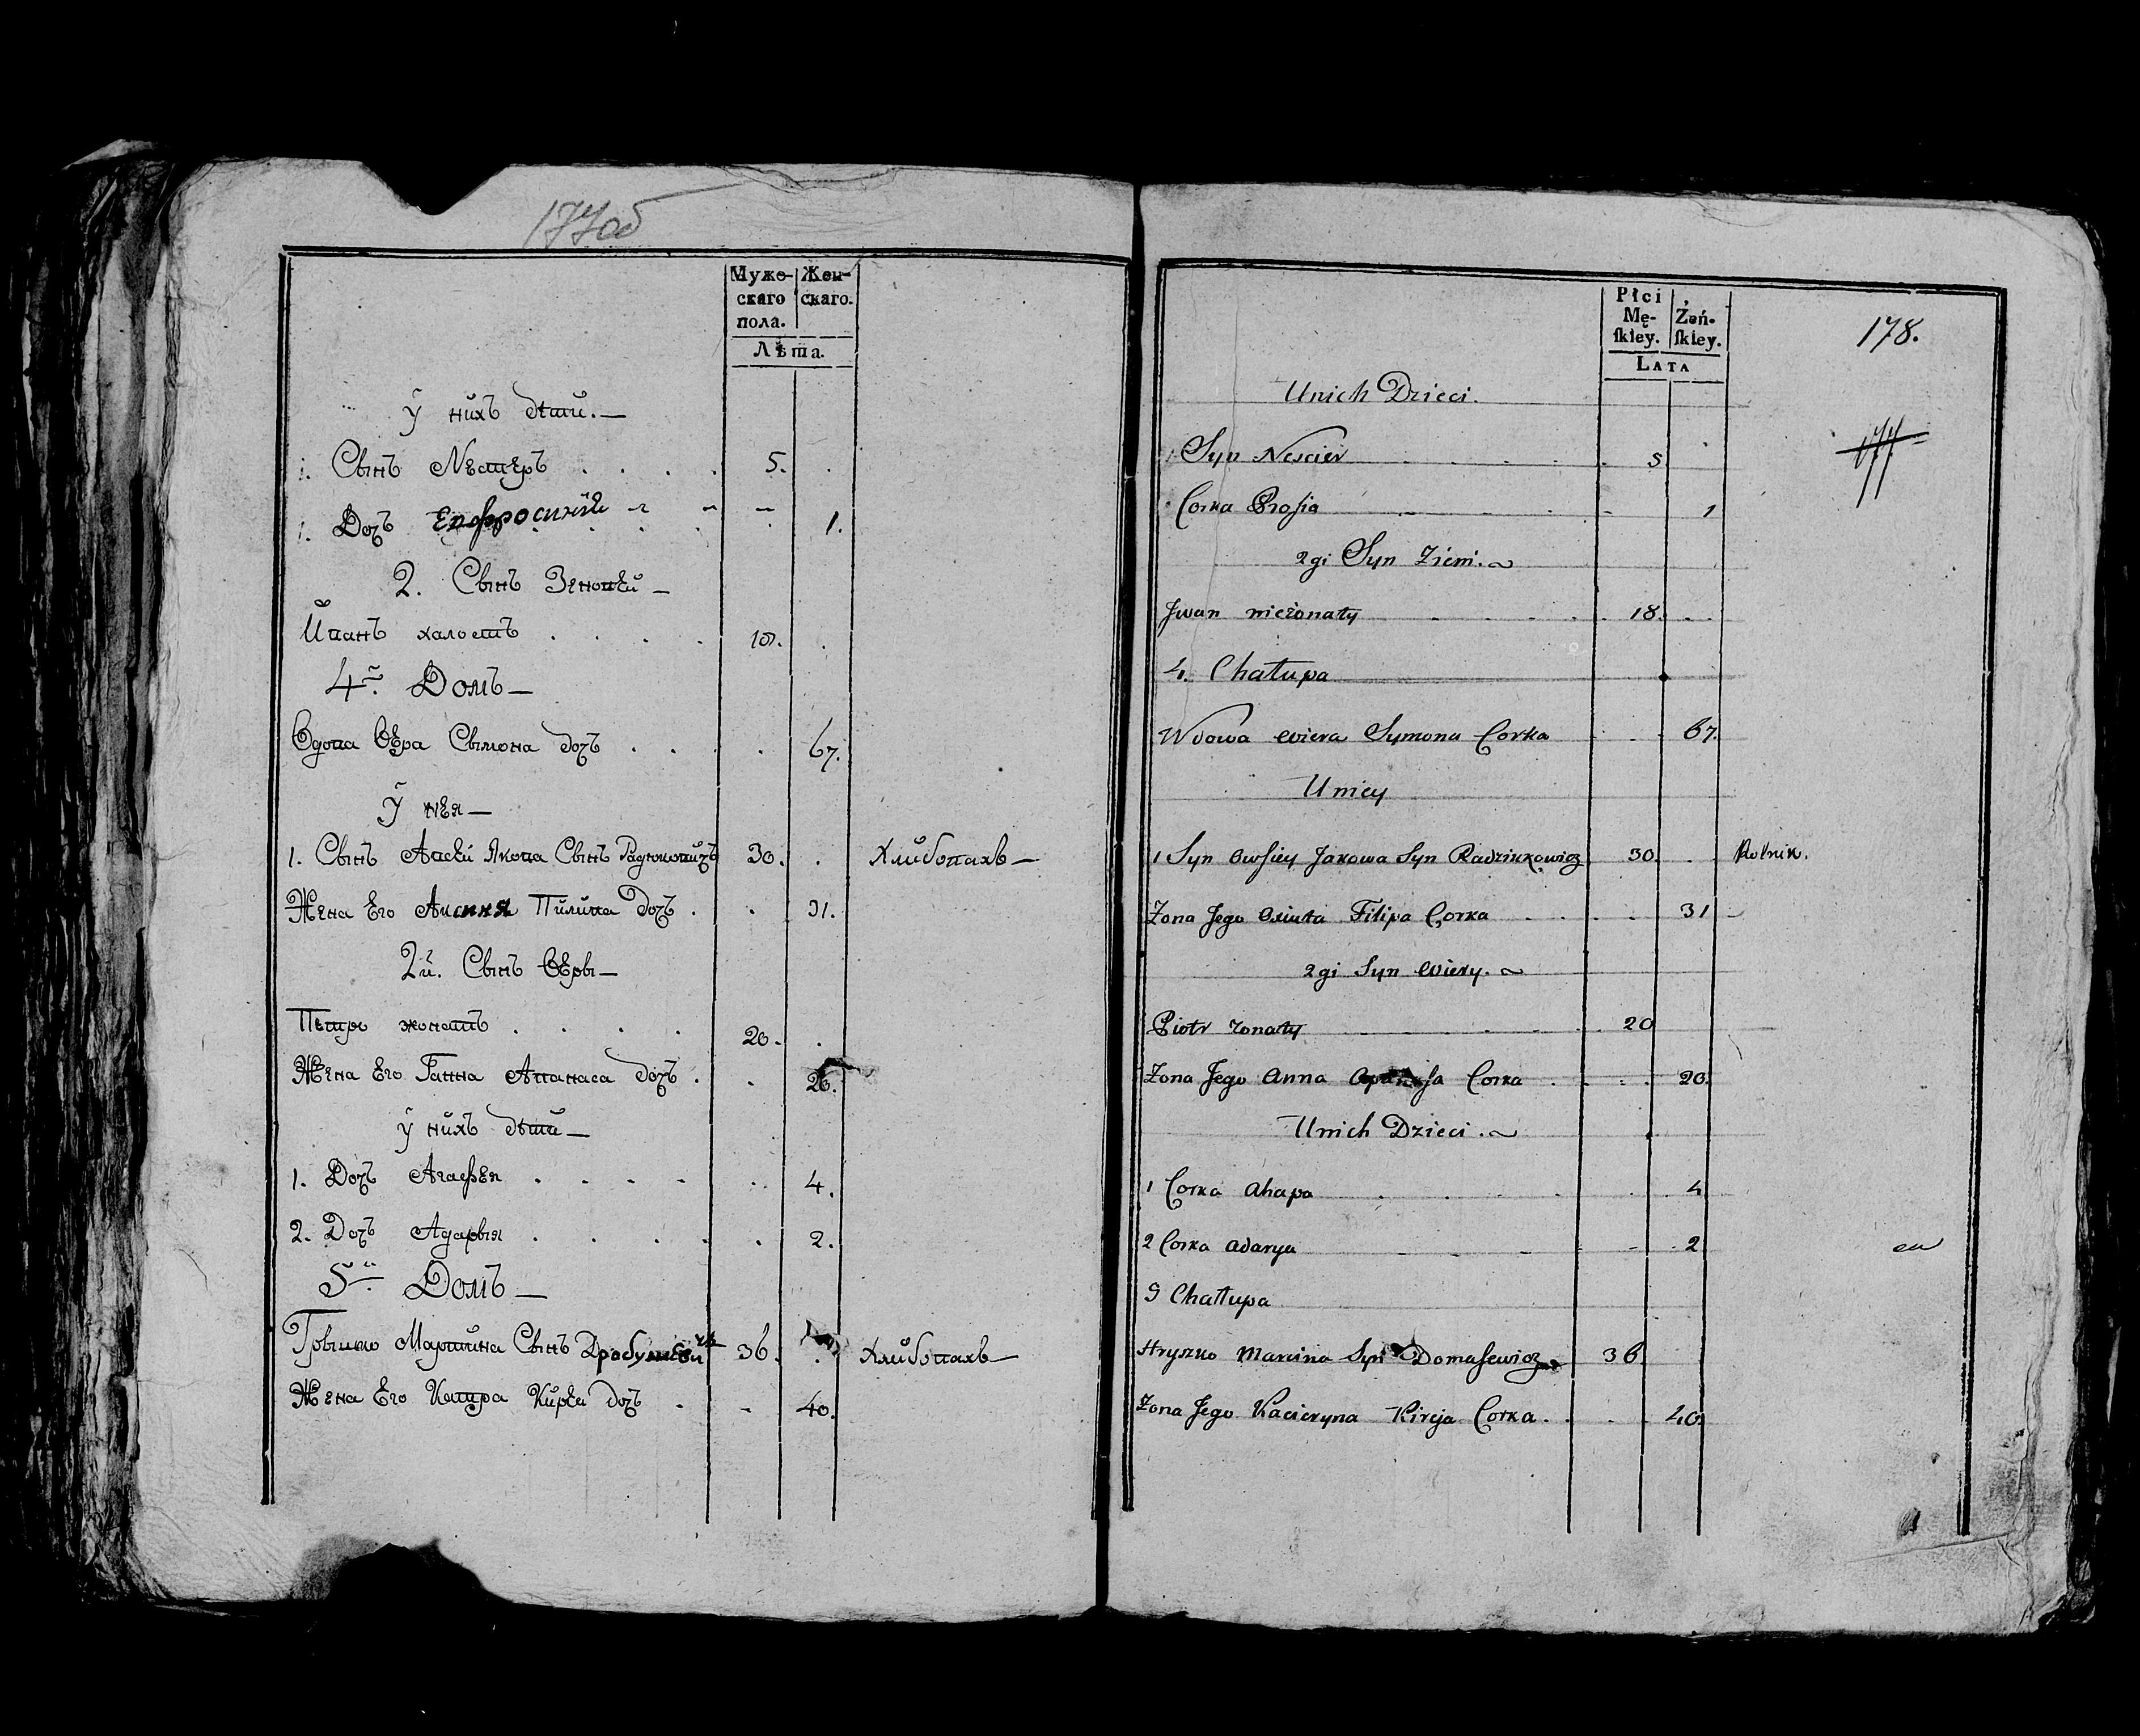 177об
Муже- Жен-
скаго скаго.
пола.
Лѣта.
ў нихъ дѣти.—
1. Сынъ Нестеръ . . . . 5. .
1. Доч Епфросинiя - - - 1.
2. Сынъ Зеновей —
Иванъ халостъ . . . . 18. .
4й. Домъ —
Вдова Вера Сымона доч . . . 67.
ў нея —
1. Сынъ Авсей Якова Сынъ Радзюковичъ 30. . Хлибопахъ —
Жена Его Аксиня Пилипа доч . . 31.
2й. Сынъ Веры —
Петро жонатъ . . . . 20. .
Жена Его Ганна Апанаса доч . . 20.
ў нихъ дѣти —
1. Доч Агафея . . . . . 4.
2. Доч Адарья . . . . . 2.
5й Домъ —
Грышко Мартина Сынъ 36. . Хлибопахъ —
Жена Его Катра Кирея доч . - 40.
Płci Żeń-
Mę- skiey.
skiey.
LATA
178.
Unich Dzieci.
1 Syn Nescier . . . . 5
177
Corka Prosia - - - - 1
2gi Syn Zieni. ~
Jwan nieżonaty . . . . 18. . .
4. Chałupa
Wdowa Wiera Symona Corka . . . 67.
Uniey
1 Syn Owsiey Jakowa Syn Radziukowicz 30. . . Rolnik.
Zona Jego Oxiuta Filipa Corka . . . . 31 -
2gi Syn Wiery. ~
Piotr zonaty . . . . 20
Zona Jego Anna Apanasa Corka . . . . 20.
Unich Dzieci. ~
1 Corka Ahapa . . . . . 4
2 Corka Adarya - - - - - 2
5 Chałłupa
Hryszko Marcina Syn Domasewicz 36.
Zona Jego Kacieryna Kireja Corka . . . . 40.